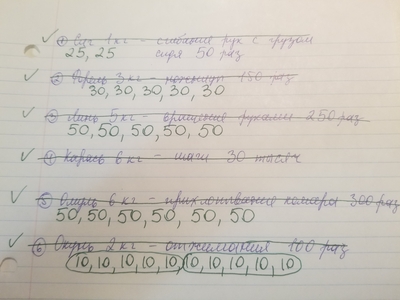 ✓ ① Сиг 1 кг – сгибание рук с грузом
25, 25 сидя 50 раз
✓ ② Форель 3 кг – ножницы 150 раз
30, 30, 30, 30, 30
✓ ③ Линь 5 кг – вращение руками 250 раз
50, 50, 50, 50, 50
✓ ④ Карась 6 кг – шаги 30 тысяч
✓ ⑤ Омуль 6 кг – прихлопывание комара 300 раз
50, 50, 50, 50, 50, 50
✓ ⑥ Окунь 2 кг – отжимания 100 раз
10, 10, 10, 10, 10, 10, 10, 10, 10, 10